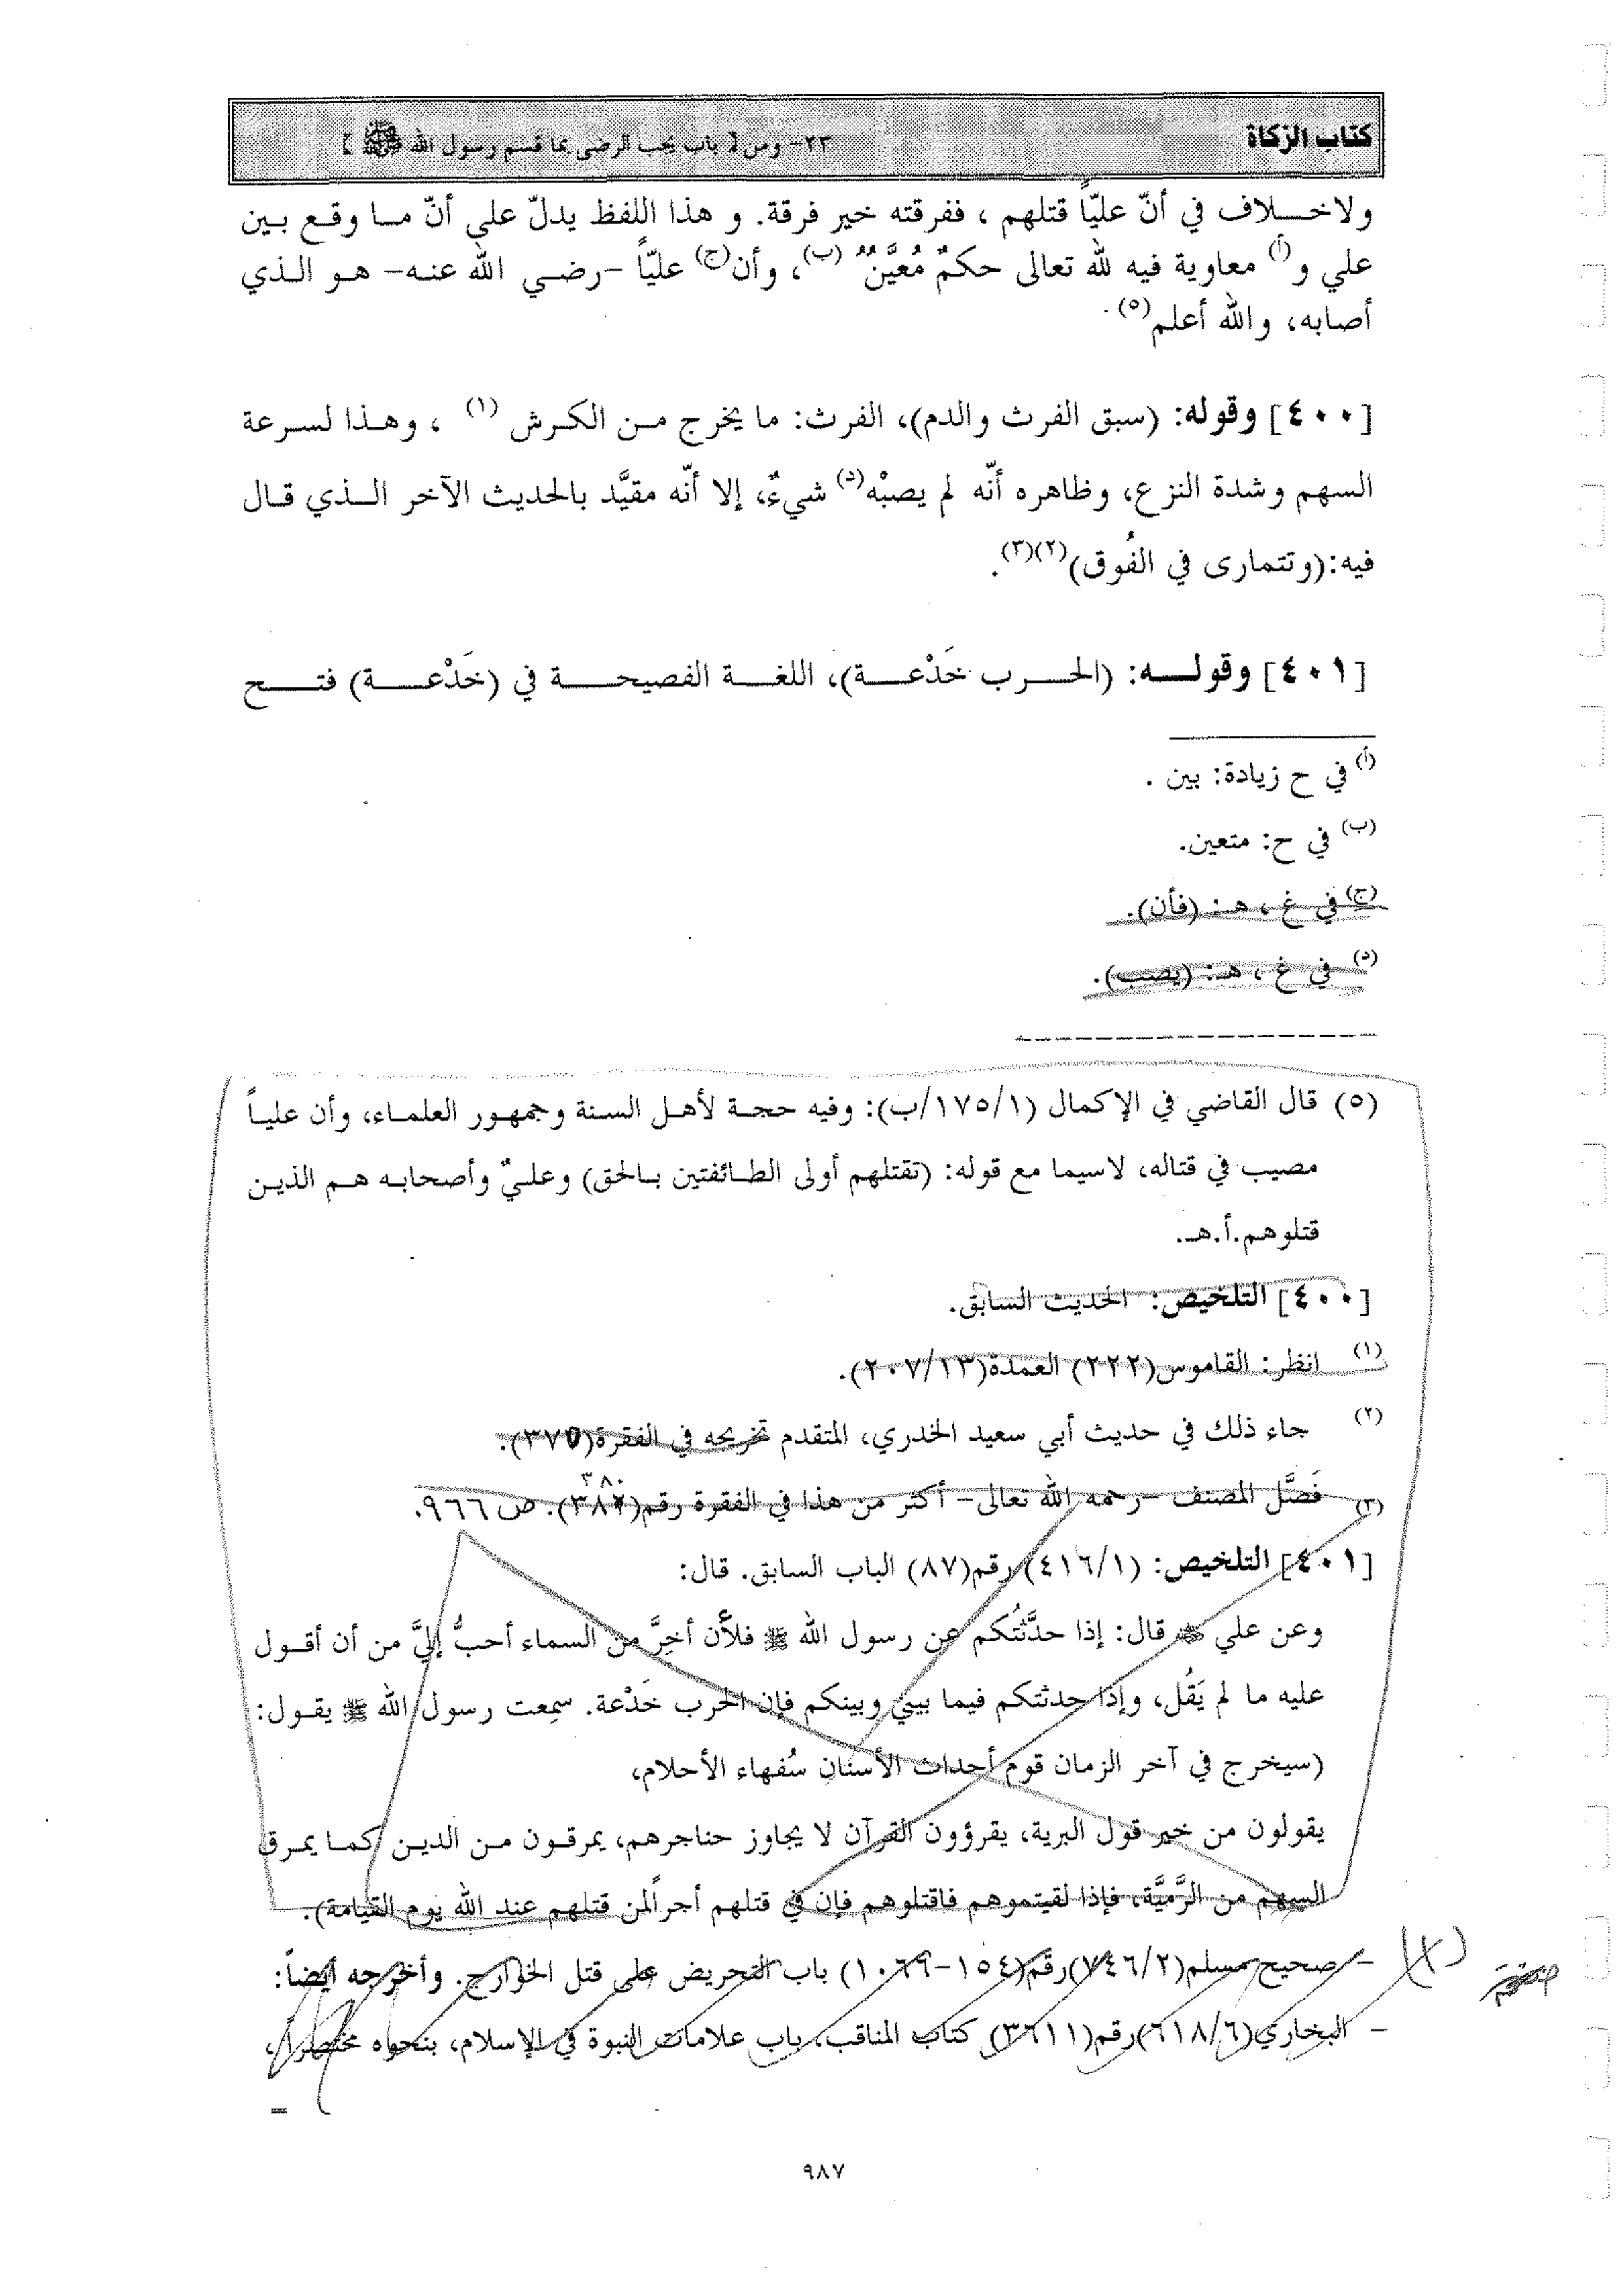 كتاب الزكاة
٢٣- ومن [ باب يجب الرضى بما قسم رسول الله ﷺ ]
ولاخـــلاف في أنّ عليّاً قتلهم ، ففرقته خير فرقة. و هذا اللفظ يدلّ على أنّ مــا وقـع بـين
علي و(أ) معاوية فيه لله تعالى حكمٌ مُعيَّنٌ (ب)، وأن(ج) عليّاً -رضـي الله عنـه- هـو الـذي
أصابه، والله أعلم(٥).
[٤٠٠] وقوله: (سبق الفرث والدم)، الفرث: ما يخرج مـن الكـرش (١) ، وهـذا لسـرعة
السهم وشدة النزع، وظاهره أنّه لم يصبْه(د) شيءٌ، إلا أنّه مقيَّد بالحديث الآخر الــذي قـال
فيه:(وتتمارى في الفُوق)(٢)(٣).
[٤٠١] وقولــه: (الحـــرب خَدْعــة)، اللغــة الفصيحــة في (خَدْعــة) فتــح
(أ) في ح زيادة: بين .
(ب) في ح: متعين.
(ج) في غ ، هـ: (فأن).
(د) في غ ، هـ: (يصب).
(٥) قال القاضي في الإكمال (١٧٥/١/ب): وفيه حجـة لأهـل السـنة وجمهـور العلمـاء، وأن عليـاً
مصيب في قتاله، لاسيما مع قوله: (تقتلهم أولى الطـائفتين بـالحق) وعلـيٌ وأصحابـه هـم الذيـن
قتلوهم.أ.هـ.
[٤٠٠] التلخيص: الحديث السابق.
(١) انظر: القاموس(٢٢٢) العمدة(٢٠٧/١٣).
(٢) جاء ذلك في حديث أبي سعيد الخدري، المتقدم تخريجه في الفقرة(٣٧٥).
٣٨٠
(٣) فَصَّل المصنف -رحمه الله تعالى- أكثر من هذا في الفقرة رقم(٣٨٢). ص ٩٦٦.
[٤٠١] التلخيص: (٤١٦/١) رقم(٨٧) الباب السابق. قال:
وعن علي ﷺ قال: إذا حدَّثتُكم عن رسول الله ﷺ فلأن أخِرَّ من السماء أحبُّ إليَّ من أن أقـول
عليه ما لم يَقُل، وإذا حدثتكم فيما بيني وبينكم فإن الحرب خَدْعة. سمِعت رسول الله ﷺ يقـول:
(سيخرج في آخر الزمان قوم أحداث الأسنان سُفهاء الأحلام،
يقولون من خير قول البرية، يقرؤون القرآن لا يجاوز حناجرهم، يمرقـون مـن الديـن كمـا يمـرق
السهم من الرَّميَّة، فإذا لقيتموهم فاقتلوهم فإن في قتلهم أجراًلمن قتلهم عند الله يوم القيامة).
- صحيح مسلم(٧٤٦/٢)رقم(١٥٤-١٠٦٦) باب التحريض على قتل الخوارج. وأخرجه أيضاً:
- البخاري(٦١٨/٦)رقم(٣٦١١) كتاب المناقب، باب علامات النبوة في الإسلام، بنحوه مختصراً،
=
٩٨٧